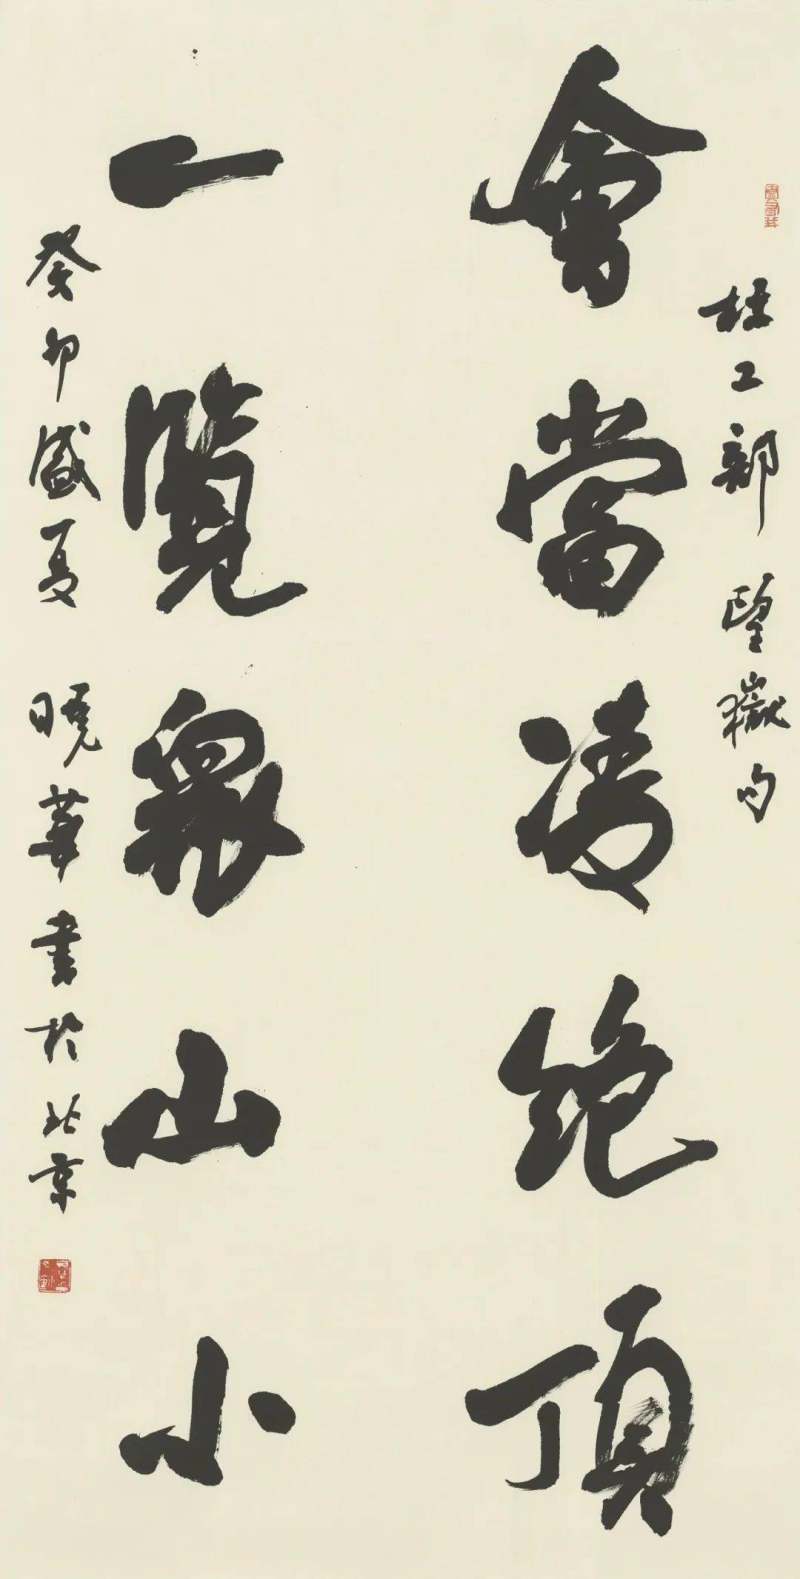 杜工部望嶽句
會當凌絶頂
一覽眾山小
癸卯盛夏 曉華書於北京